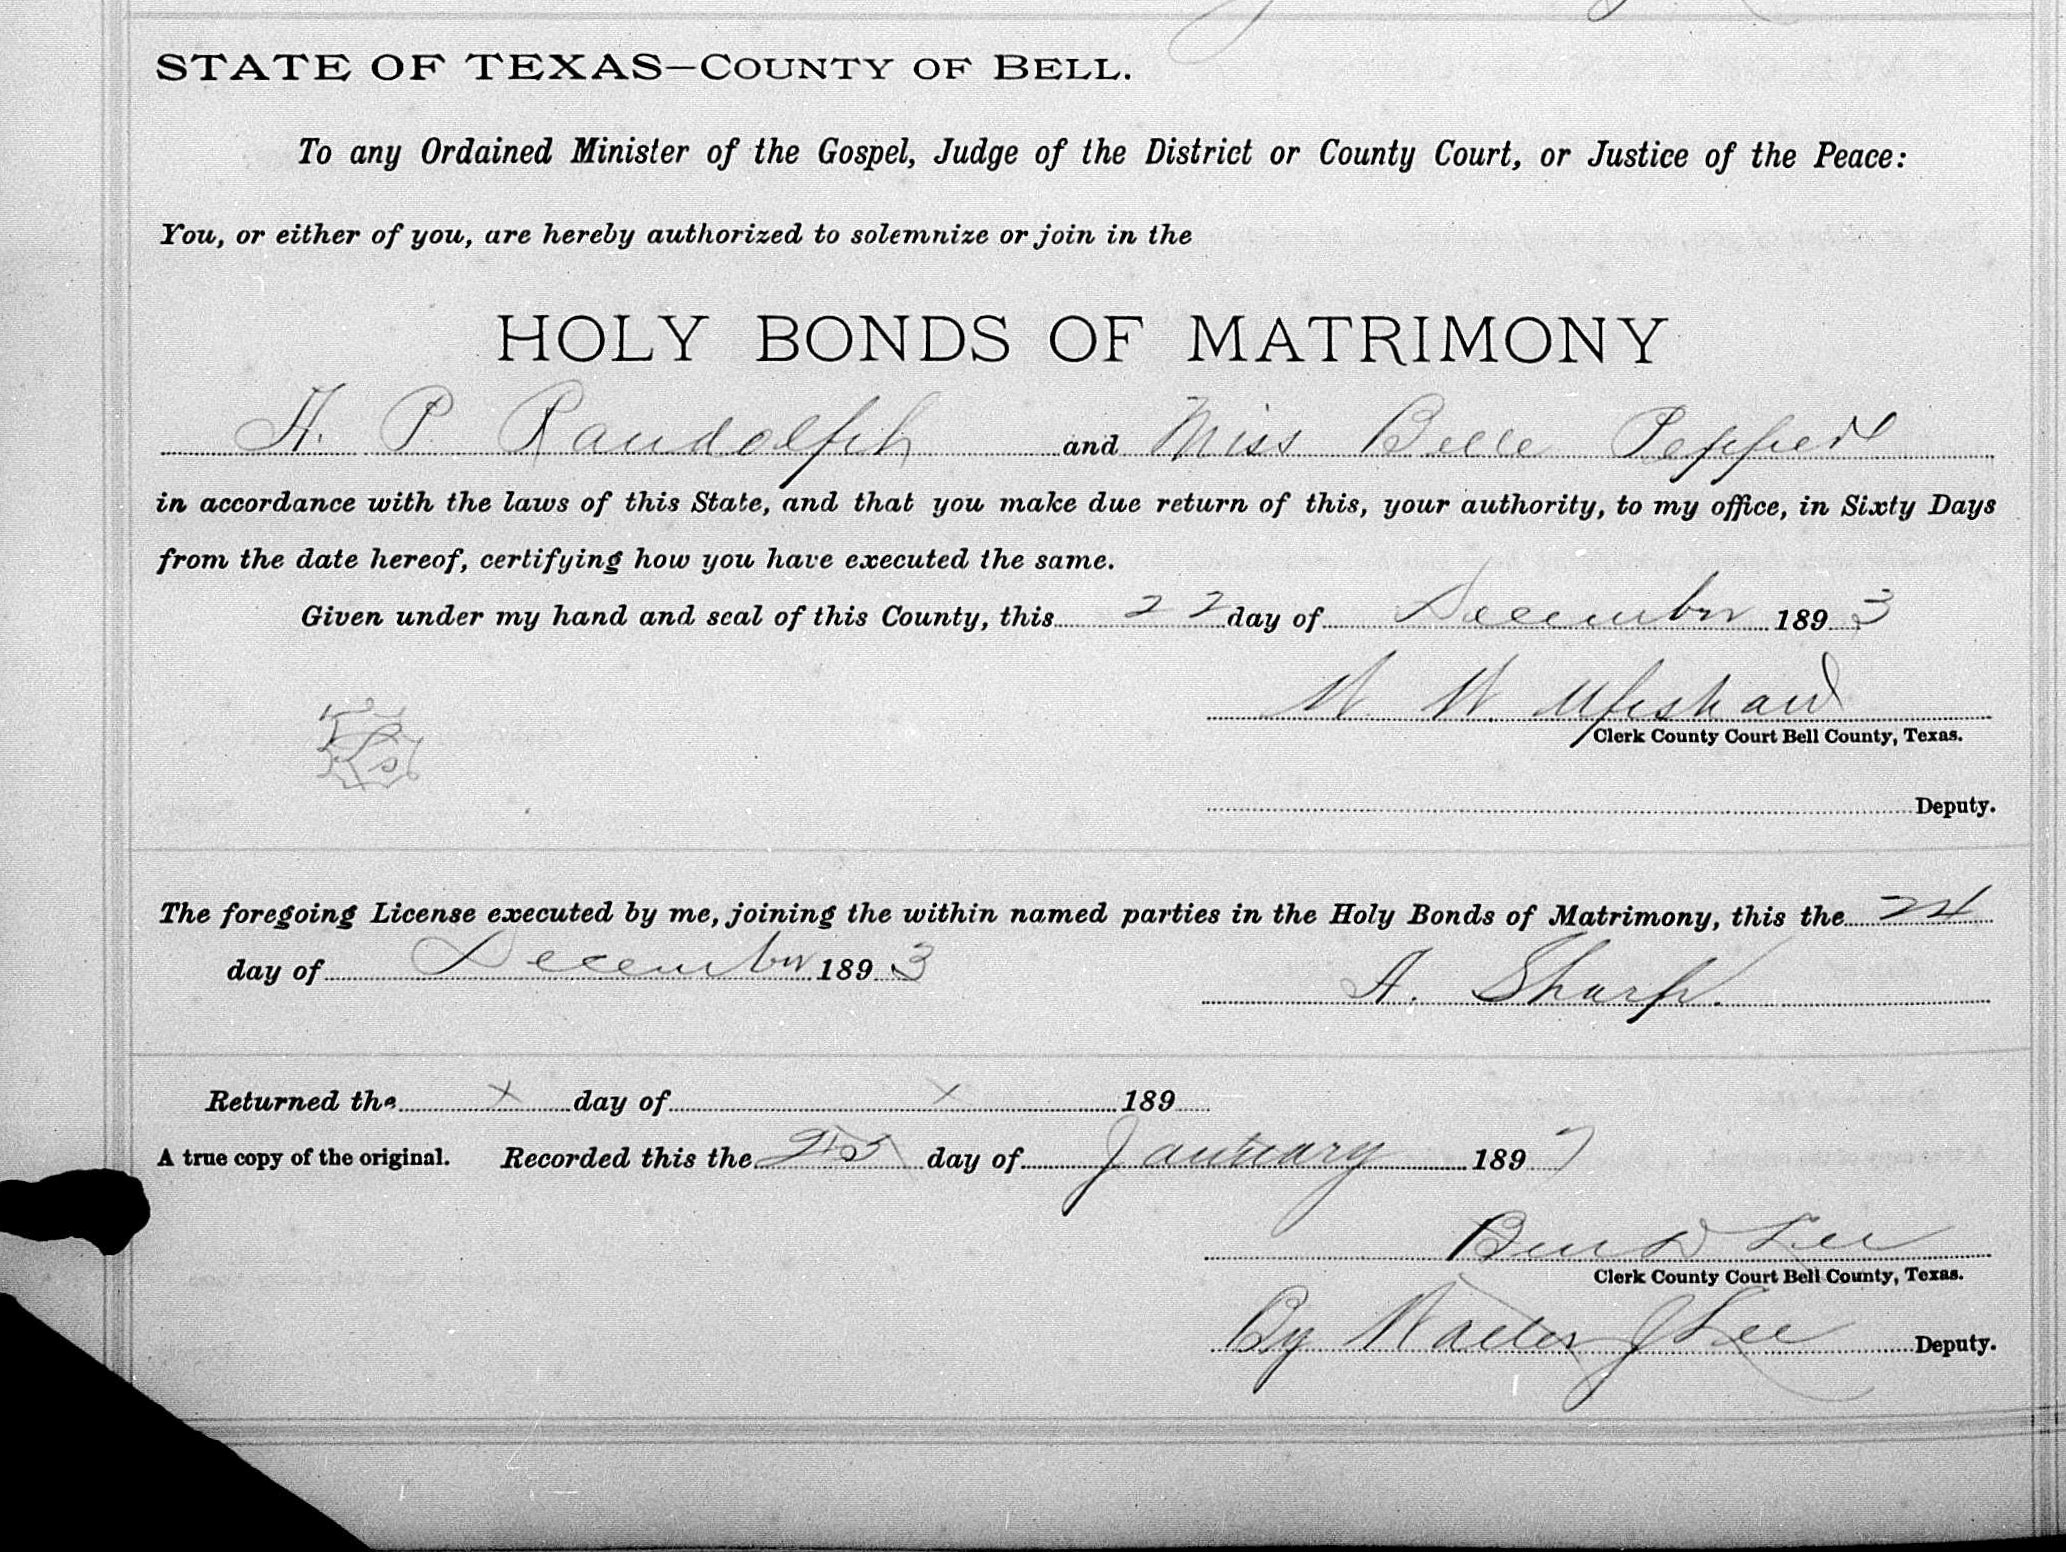 STATE OF TEXAS—COUNTY OF BELL.
To any Ordained Minister of the Gospel, Judge of the District or County Court, or Justice of the Peace:
You, or either of you, are hereby authorized to solemnize or join in the
HOLY BONDS OF MATRIMONY
H. P. Randolph and Miss Belle Pepper
in accordance with the laws of this State, and that you make due return of this, your authority, to my office, in Sixty Days
from the date hereof, certifying how you have executed the same.
Given under my hand and seal of this County, this 22 day of December 1893
W. W. Upshaw
Clerk County Court Bell County, Texas.
LS
Deputy.
The foregoing License executed by me, joining the within named parties in the Holy Bonds of Matrimony, this the 24
day of December 1893
A. Sharp.
Returned the x day of x 189
A true copy of the original. Recorded this the day of January 1897
Ben D Lee
Clerk County Court Bell County, Texas.
By Walter J Lee Deputy.